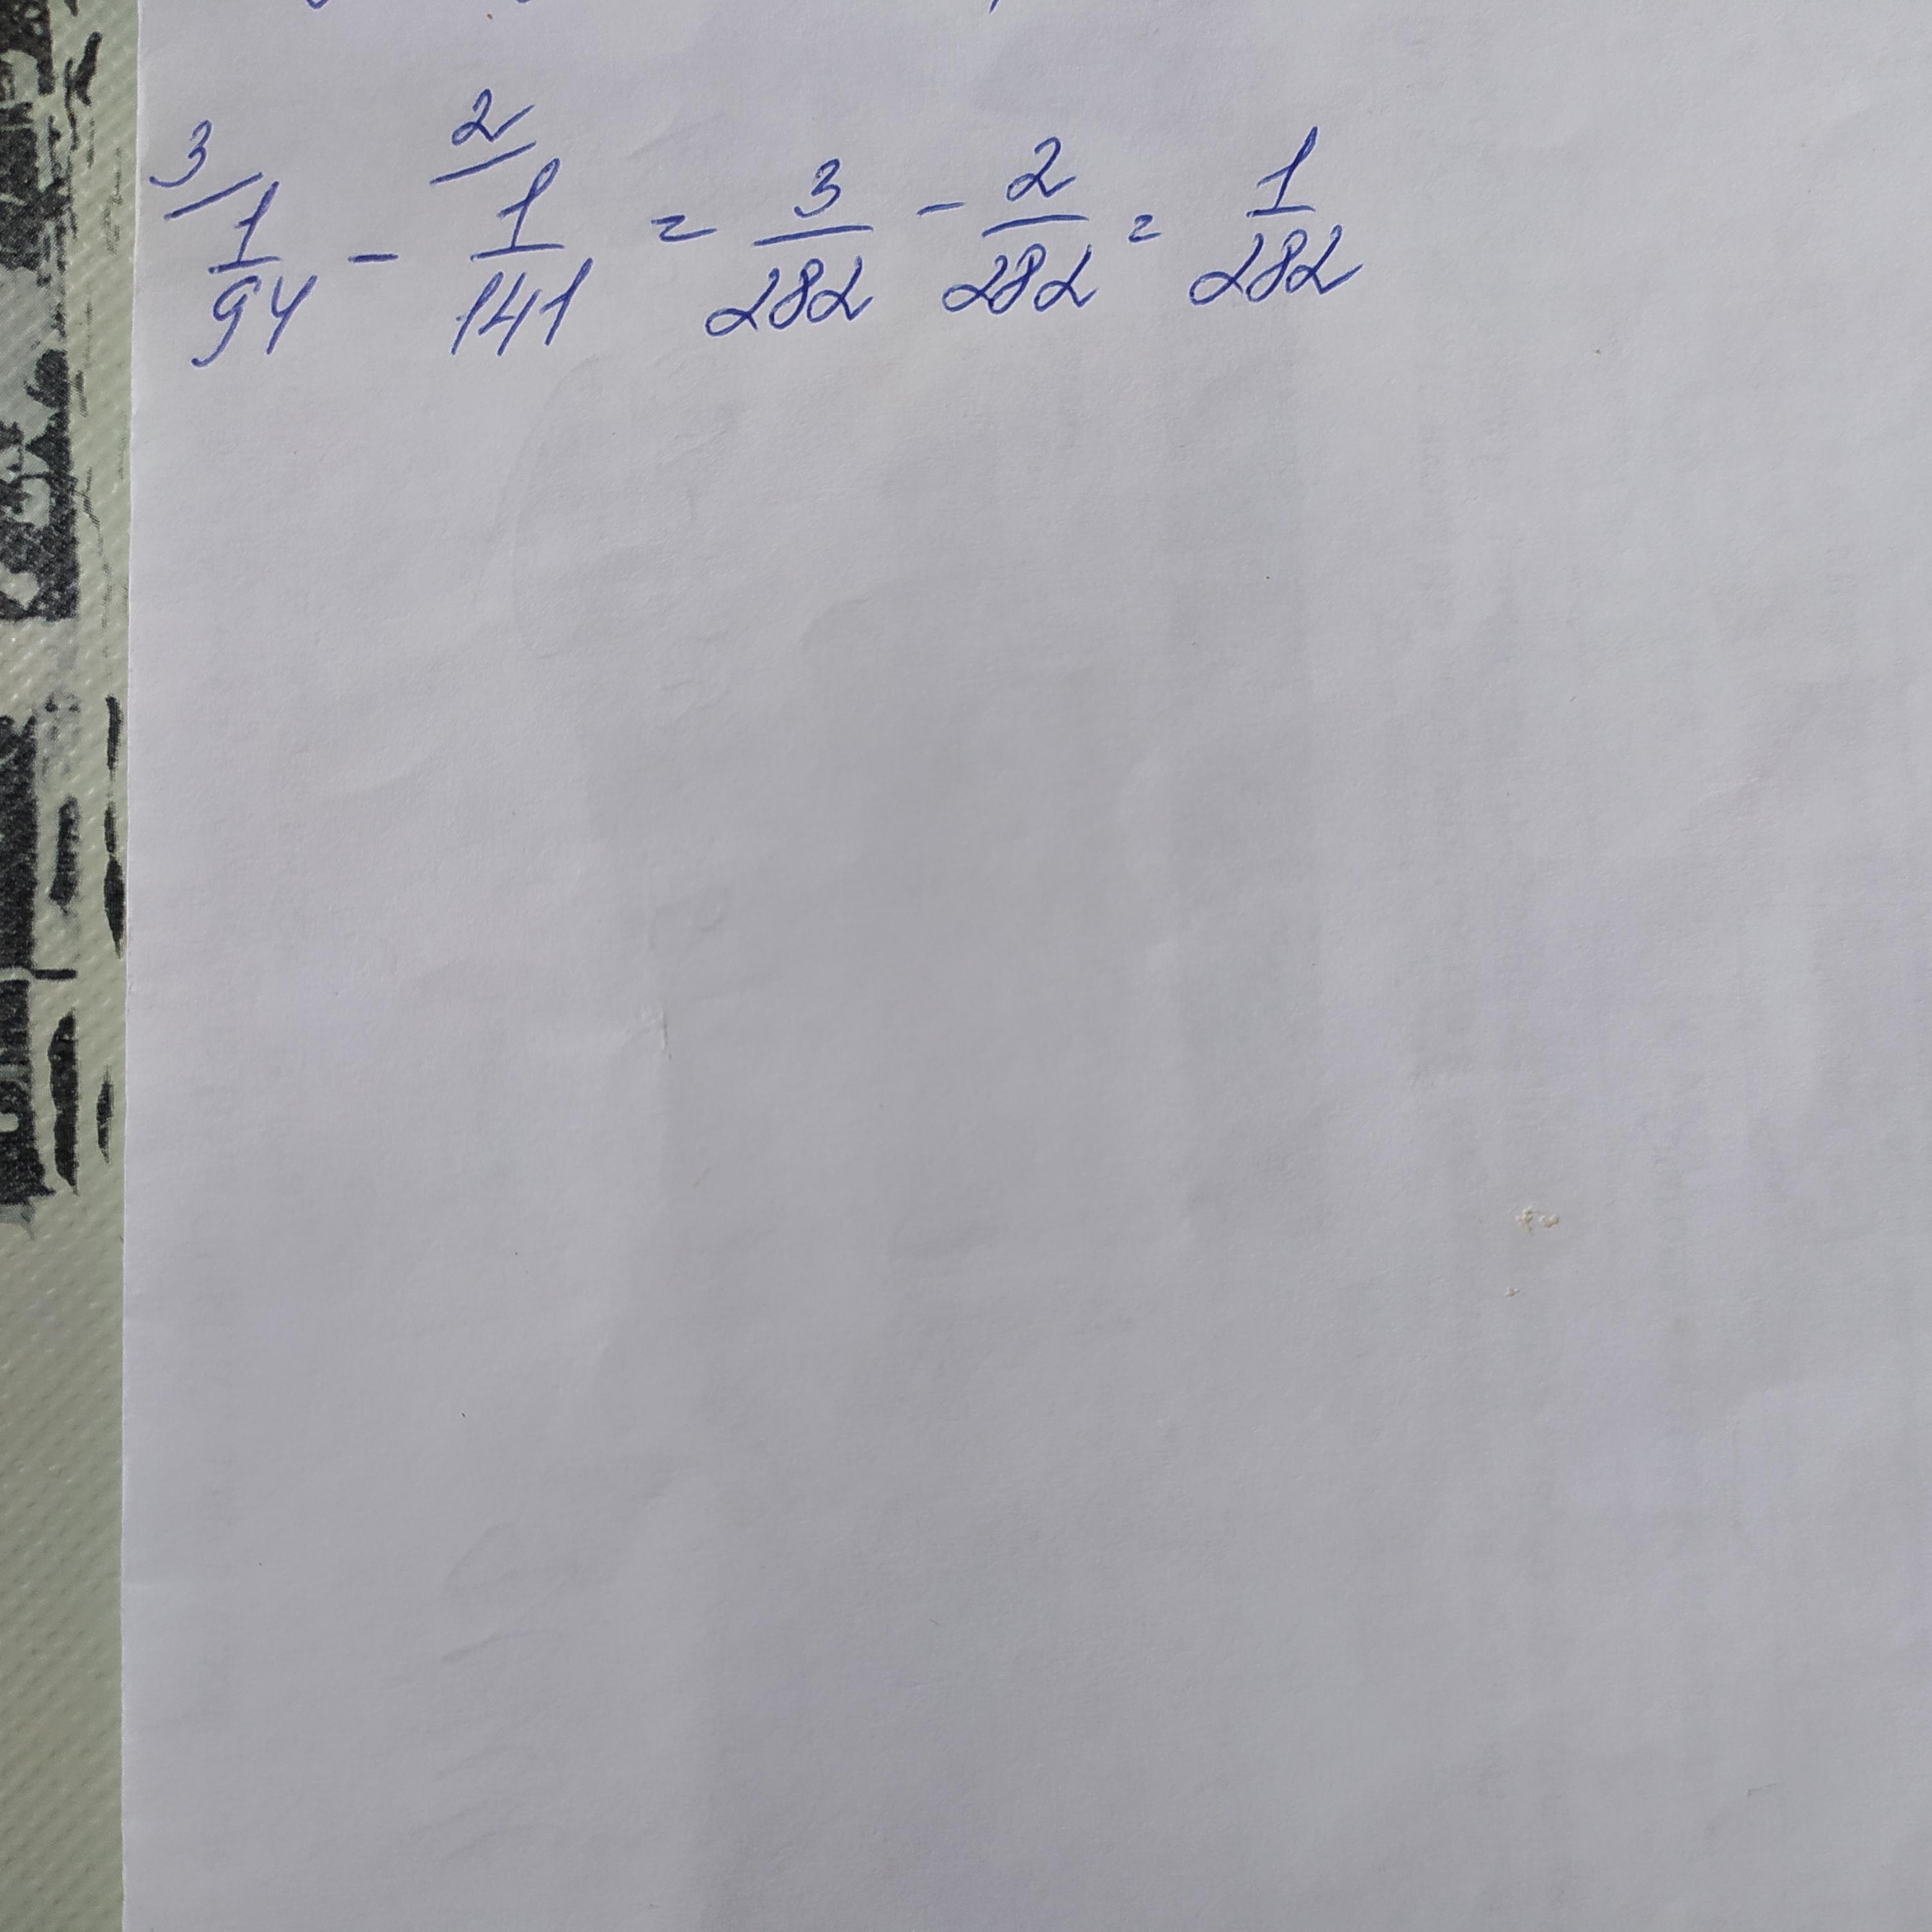 3/ 1/94 - 2/ 1/141 = 3/282 - 2/282 = 1/282